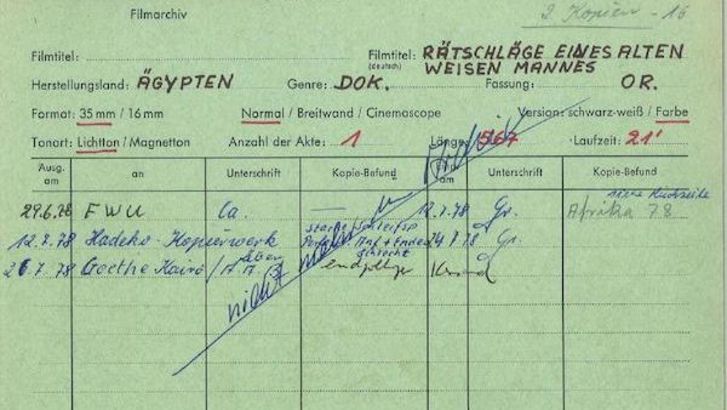 Filmarchiv
2 Kopien - 16
Filmtitel:
Filmtitel: RÄTSCHLÄGE EINES ALTEN
(deutsch) WEISEN MANNES
Herstellungsland: ÄGYPTEN Genre: DOK. Fassung: OR.
Format: 35 mm / 16 mm Normal / Breitwand / Cinemascope Version: schwarz-weiß / Farbe
Tonart: Lichtton / Magnetton Anzahl der Akte: 1 Länge: 567 Laufzeit: 21'
Ausg. am an Unterschrift Kopie-Befund am Unterschrift Kopie-Befund
siehe Rückseite
29.6.78 FWU Ca. — 12.7.78 Gr. Afrika 78
12.7.78 Hadeko-Kopierwerk starke Perfo. Anf + Ende schlecht 24 7 78 Gr.
26.7.78 Goethe Kairo
nicht mehr im Archiv